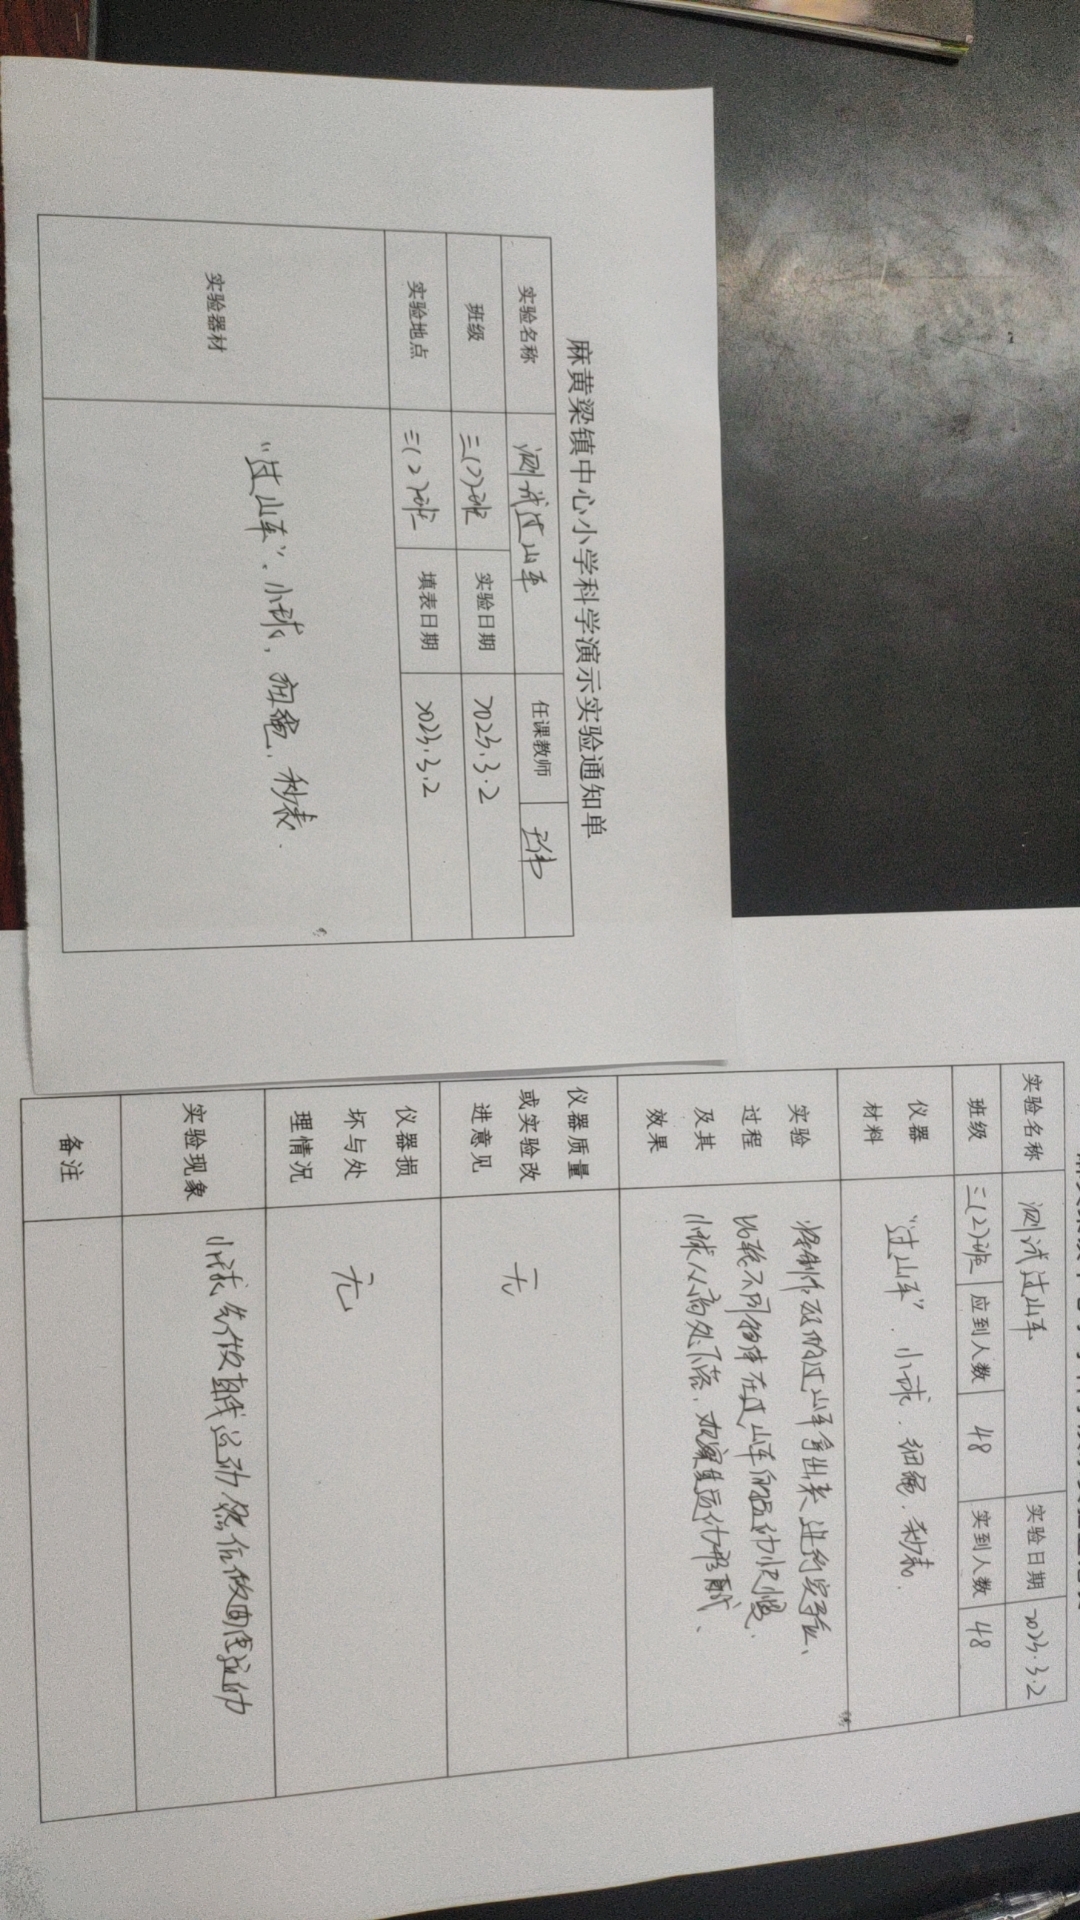 麻黄梁镇中心小学科学演示实验通知单
实验名称 测试过山车 任课教师
班级 三(2)班 实验日期 2023.3.2
实验地点 三(2)班 填表日期 2023.3.2
实验器材 “过山车”、小球、细绳、秒表.
实验名称 测试过山车 实验日期 2023.3.2
班级 三(2)班 应到人数 48 实到人数 48
仪器
材料
“过山车”、小球、细绳、秒表.
实验
过程
及其
效果
将制作好的过山车拿出来进行实验、
比较不同物体在过山车的运动快慢.
小球从高处下落,观察其运动形式、
仪器质量
或实验改
进意见
无
仪器损
坏与处
理情况
无
实验现象 小球先做直线运动然后做曲线运动
备注